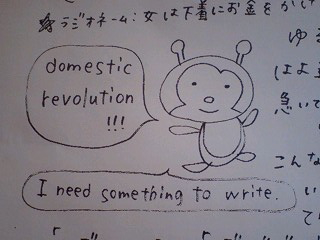 ☆ラジオネーム:女は下着にお金をかけ
ゆる
domestic
revolution
!!!
はよ
急いで
こんな
い
I need something to write.
て